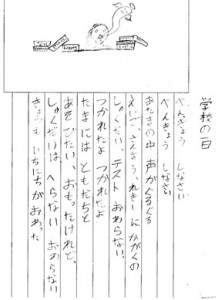 学校の一日
べんきょう しなさい
べんきょう しなさい
あたまの中 声がぐるぐる
えいご さんすう、れきし にかがくの
しゅくだい、テスト おわらない。
つかれたよ つかれたよ
たまには ともだちと
あそびたい、おもったけれど、
しゅくだいは、へらない おわらない
いちにちが おわった